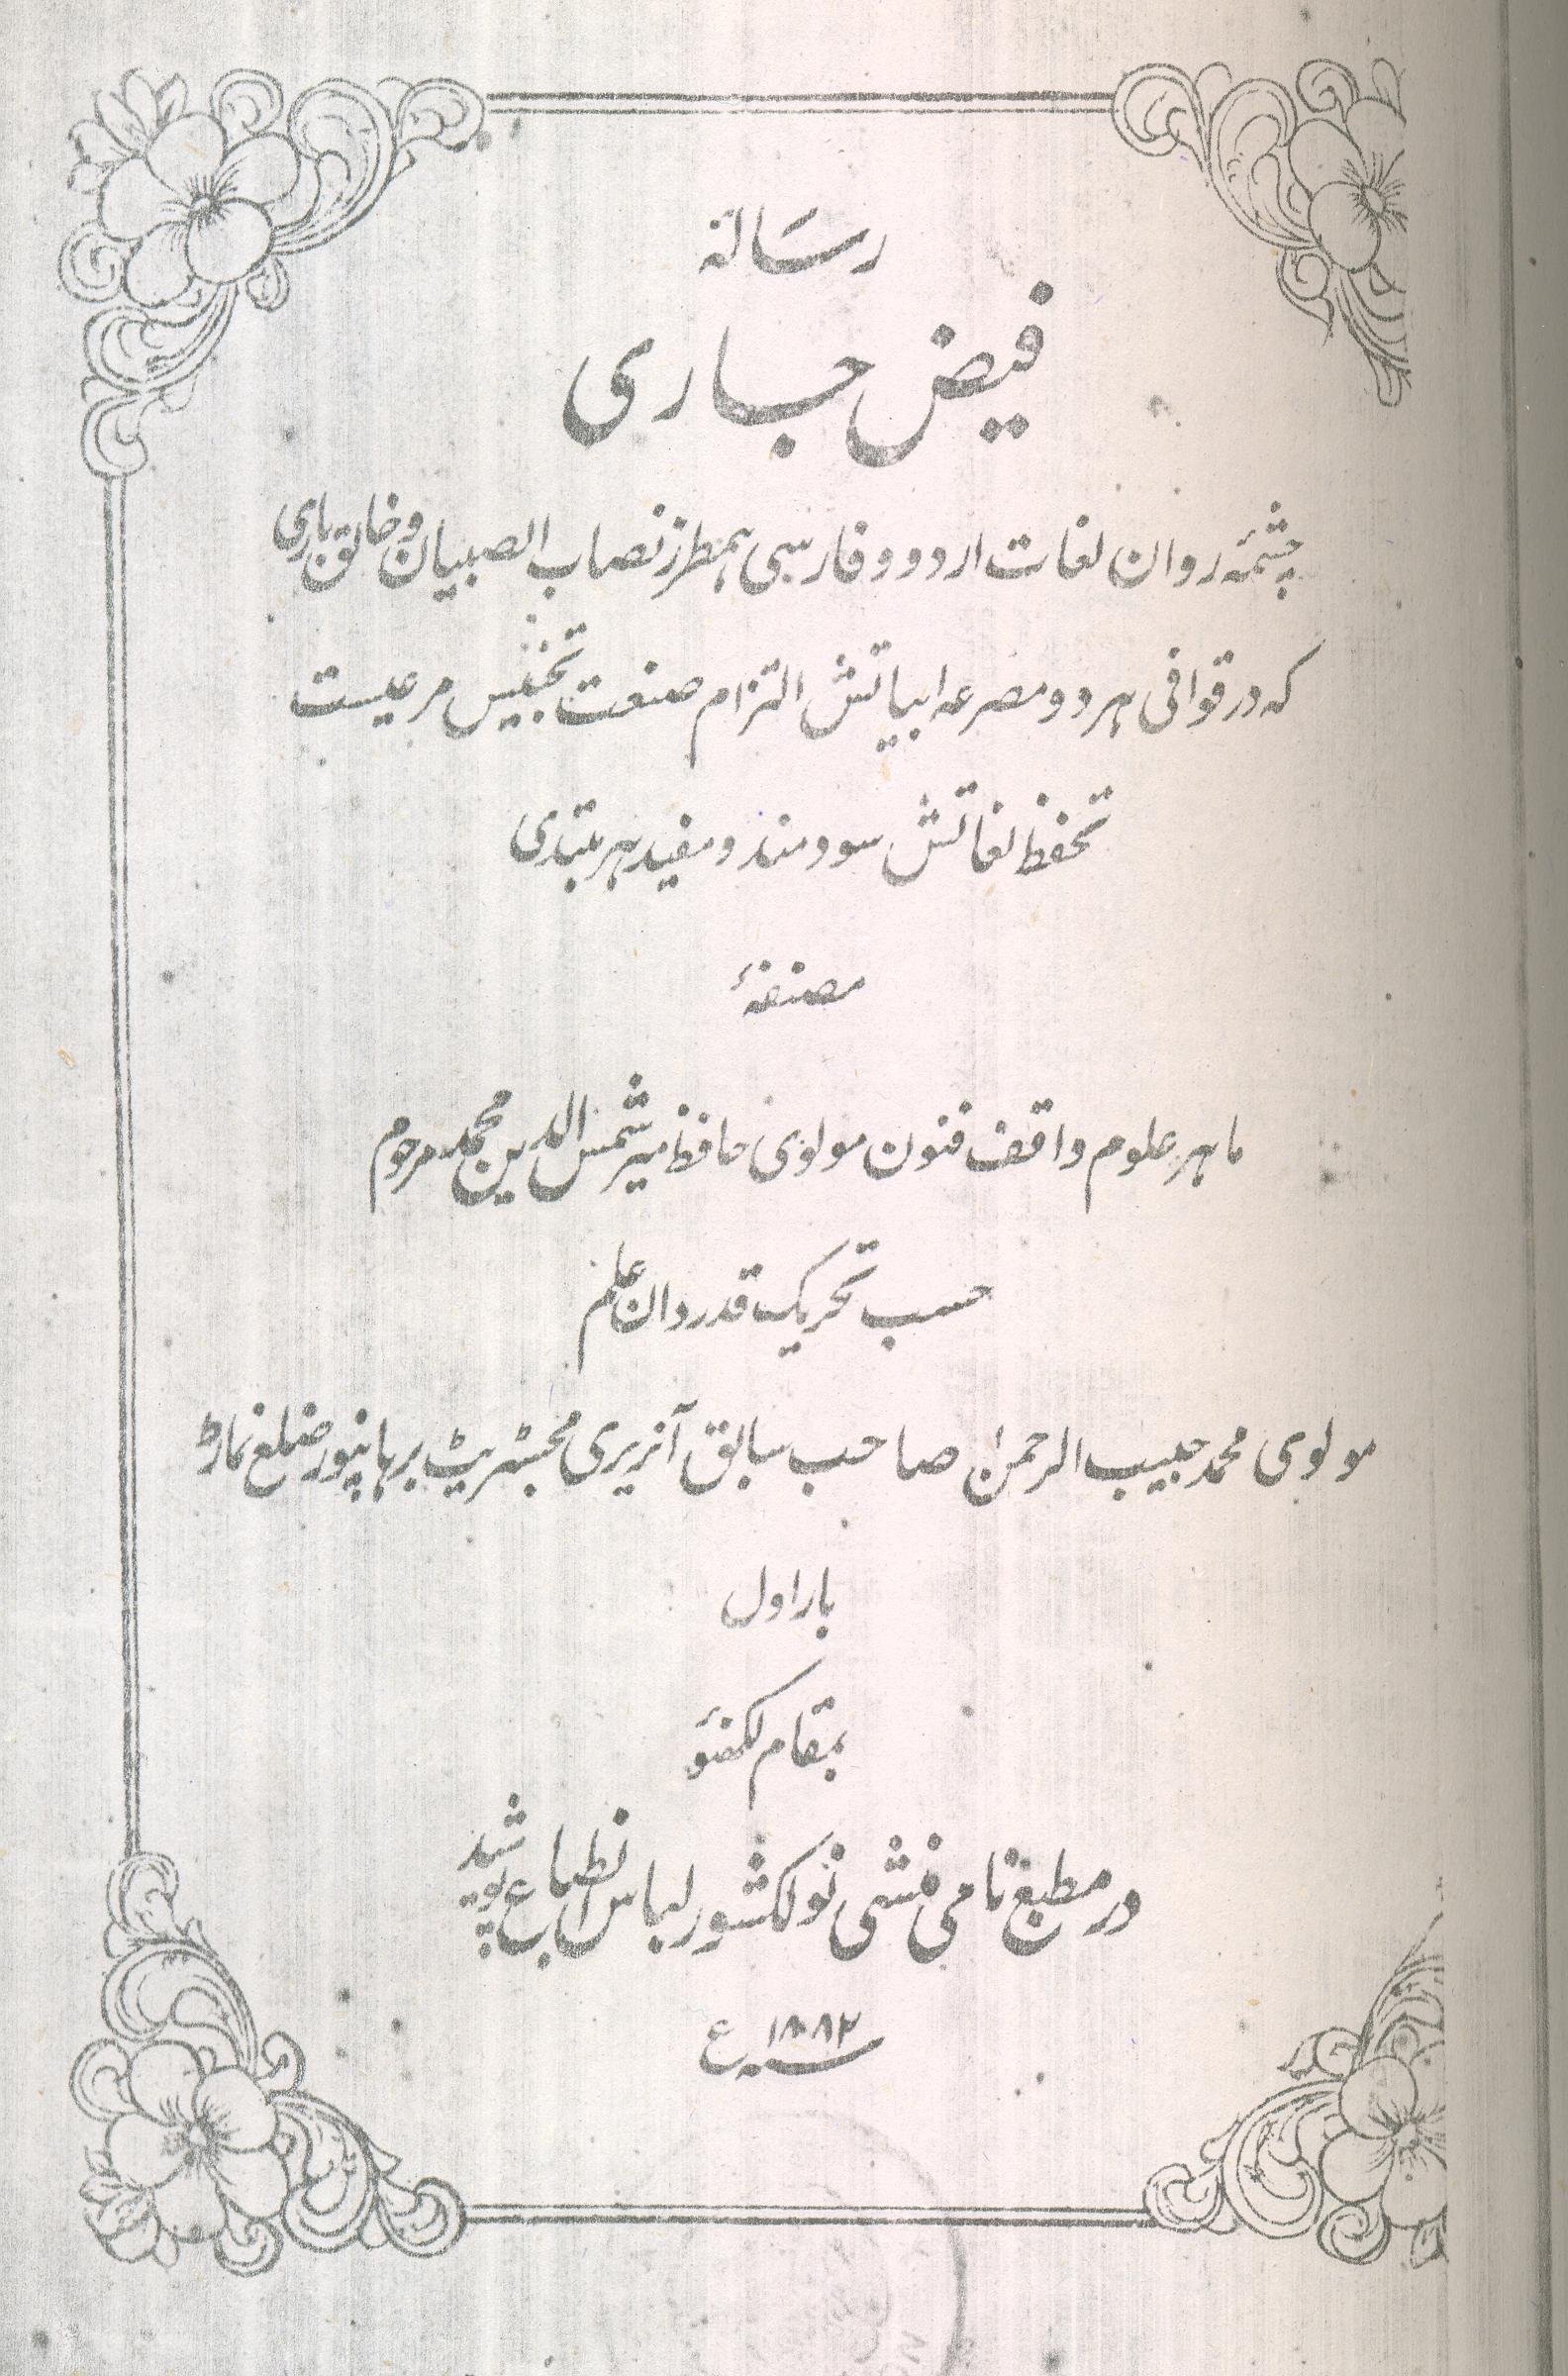 رسالہ
فیض جاری
چشمۂ روان لغات اردو و فارسی ہمطرز نصاب الصبیان و خالق باری
کہ در قوافی ہر دو مصرعہ ابیاتش التزام صنعت تجنیس مرعیست
تحفظ لغاتش سودمند و مفید ہر مبتدی
مصنفۂ
ماہر علوم واقف فنون مولوی حافظ میر شمس الدین محمد مرحوم
حسب تحریک قدردان علم
مولوی محمد حبیب الرحمن صاحب سابق آنریری مجسٹریٹ برہانپور ضلع نماڑ
بار اول
بمقام لکھنؤ
در مطبع نامی منشی نولکشور لباس انطباع پوشید
سنہ ۱۸۸۲ ع